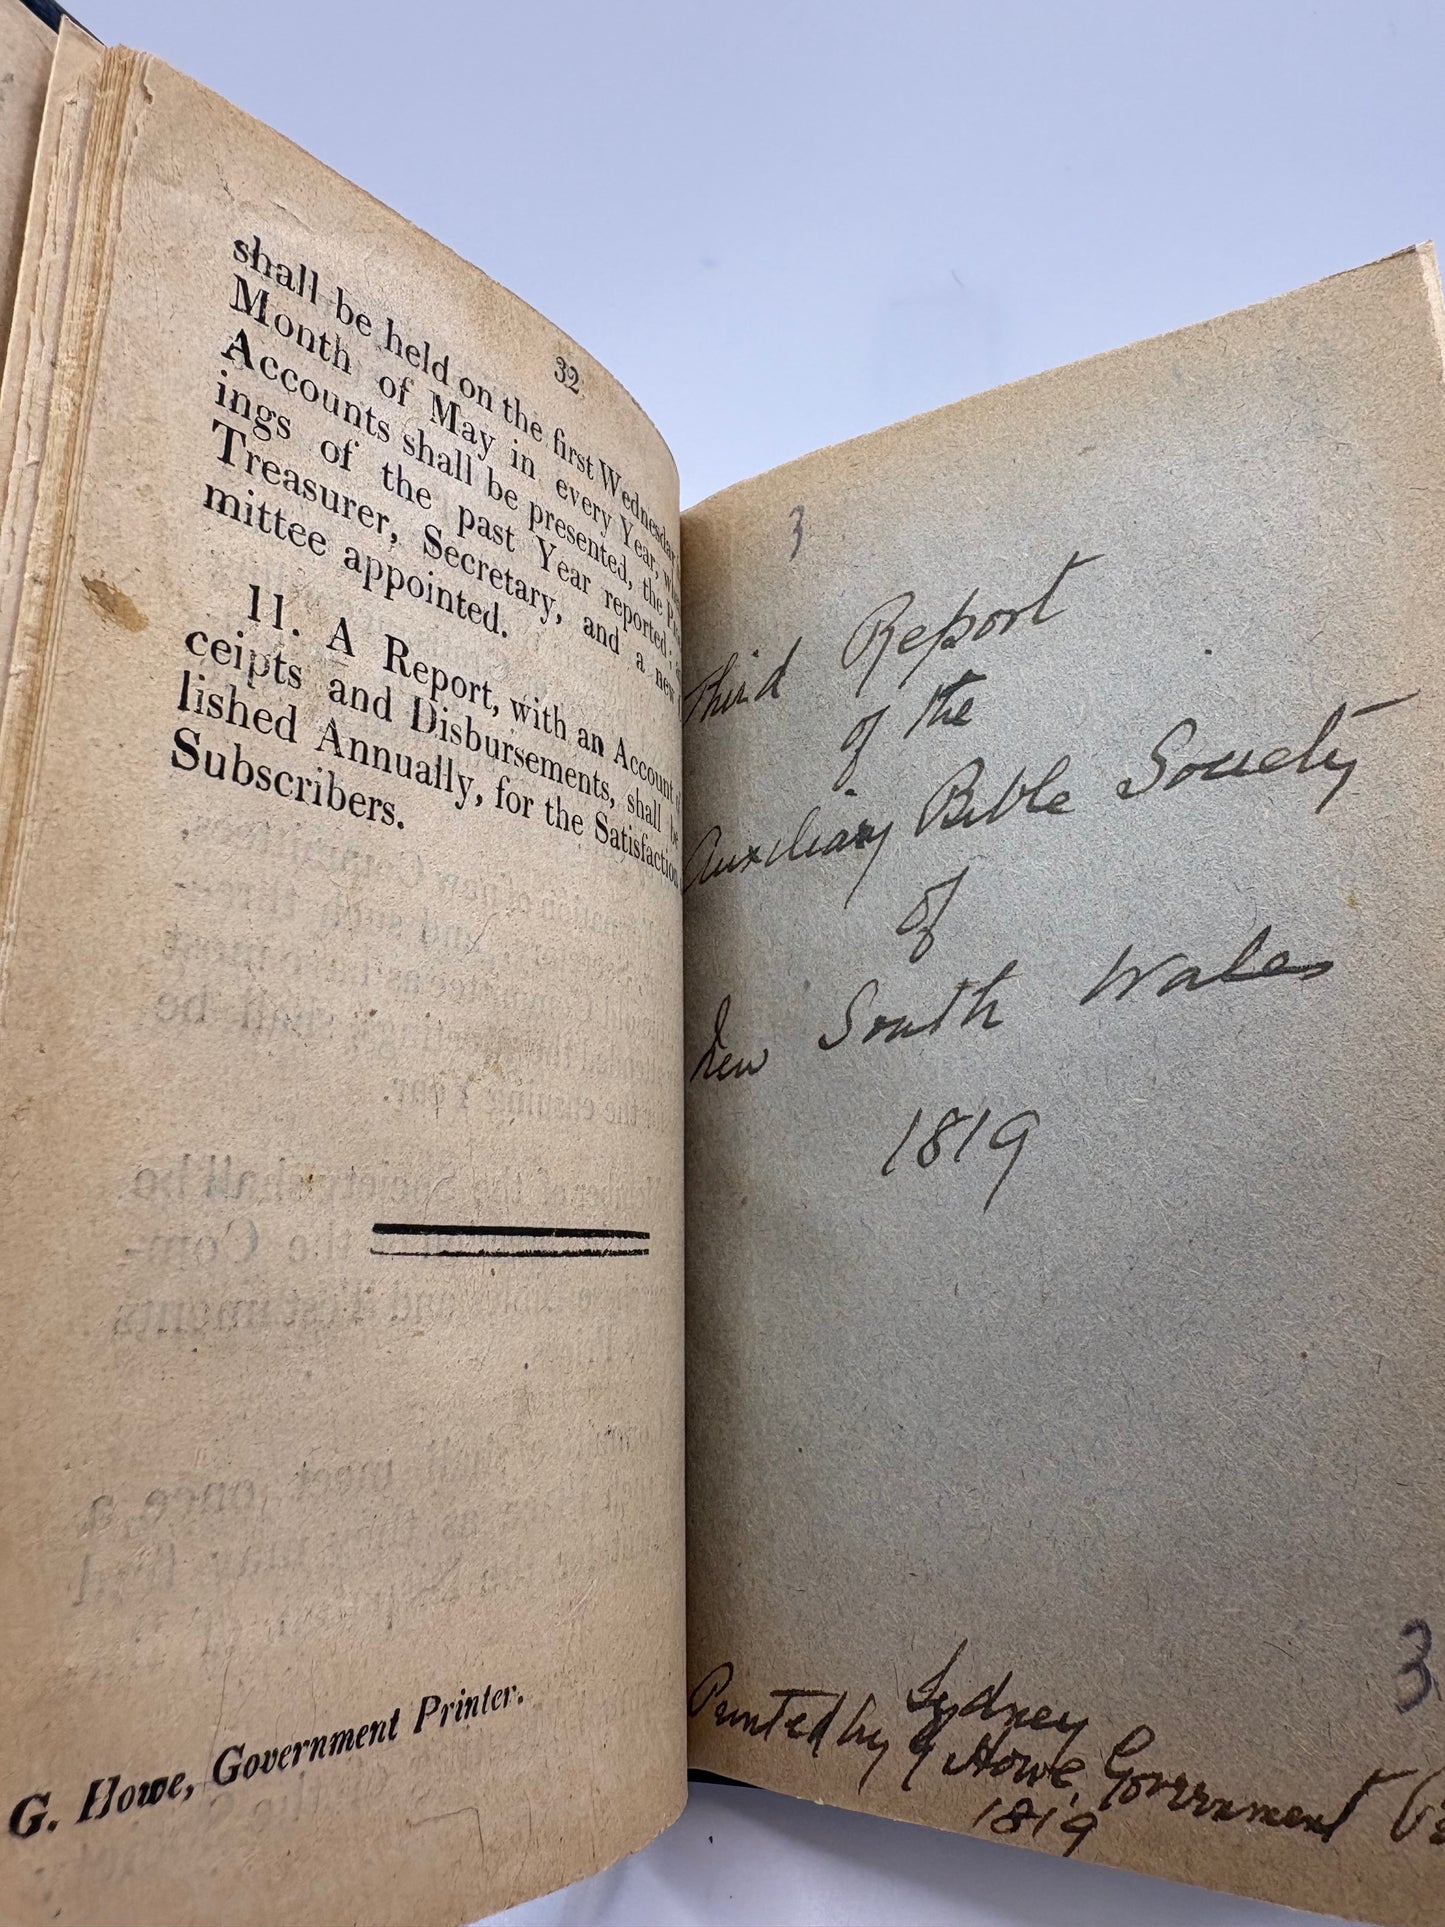 32
shall be held on the first Wednesday
Month of May in every Year, when
Accounts shall be presented, the
ings of the past Year reported;
Treasurer, Secretary, and a new
mittee appointed.
11. A Report, with an Account of
ceipts and Disbursements, shall be
lished Annually, for the Satisfaction
Subscribers.
G. Howe, Government Printer.
3
Third Report
of the
Auxiliary Bible Society
of
New South Wales
1819
3
Sydney
Printed by G Howe, Government
1819